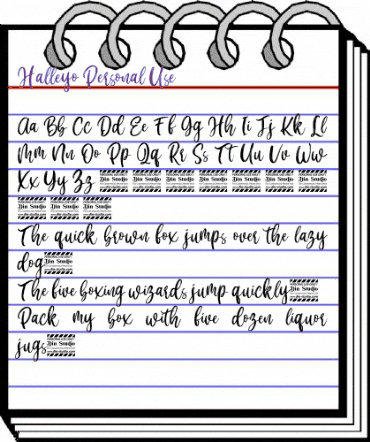 Halleyo Personal Use
Aa Bb Cc Dd Ee Ff Gg Hh Ii Jj Kk Ll
Mm Nn Oo Pp Qq Rr Ss Tt Uu Vv Ww
Xx Yy Zz
The quick brown fox jumps over the lazy
dog
The five boxing wizards jump quickly
Pack my box with five dozen liquor
jugs